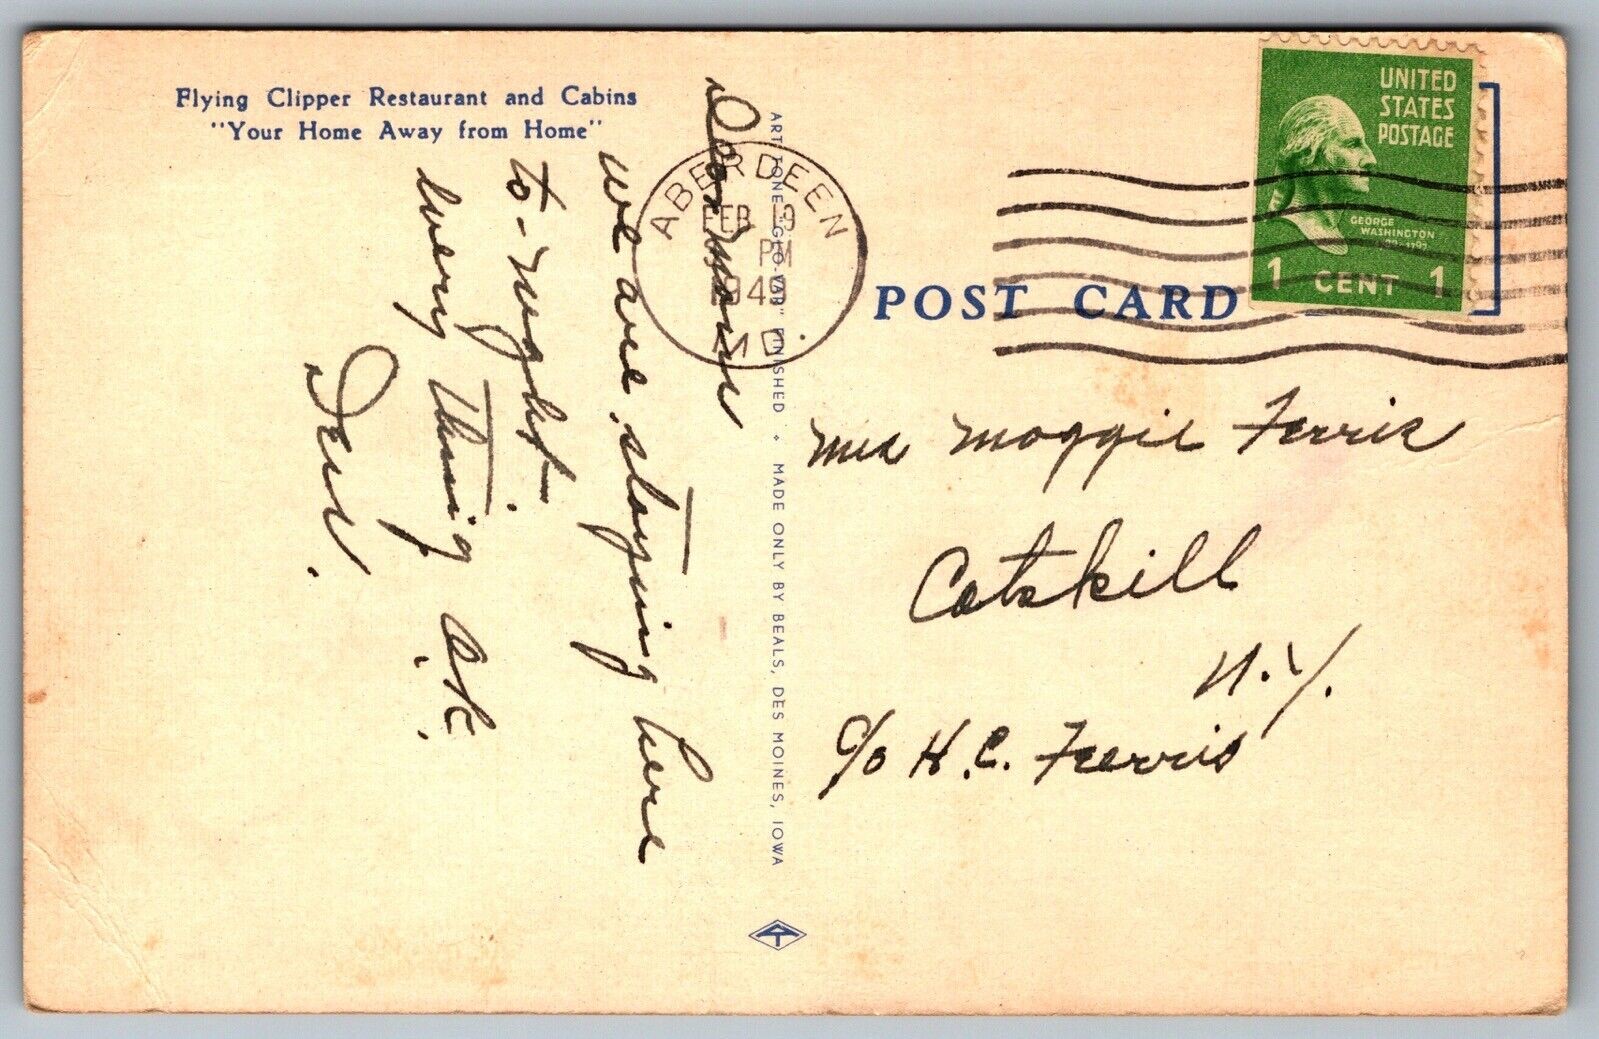 Flying Clipper Restaurant and Cabins
"Your Home Away from Home"
Dear Mom
we are staying here
to-night
every thing OK.
ART-TONE "GLO-VAR" FINISHED • MADE ONLY BY BEALS, DES MOINES, IOWA
ABERDEEN
FEB 19
PM
MD.
UNITED
STATES
POSTAGE
GEORGE
WASHINGTON
1 CENT 1
POST CARD
Mrs Maggie Ferris
Catskill
N.Y.
c/o H.C. Ferris